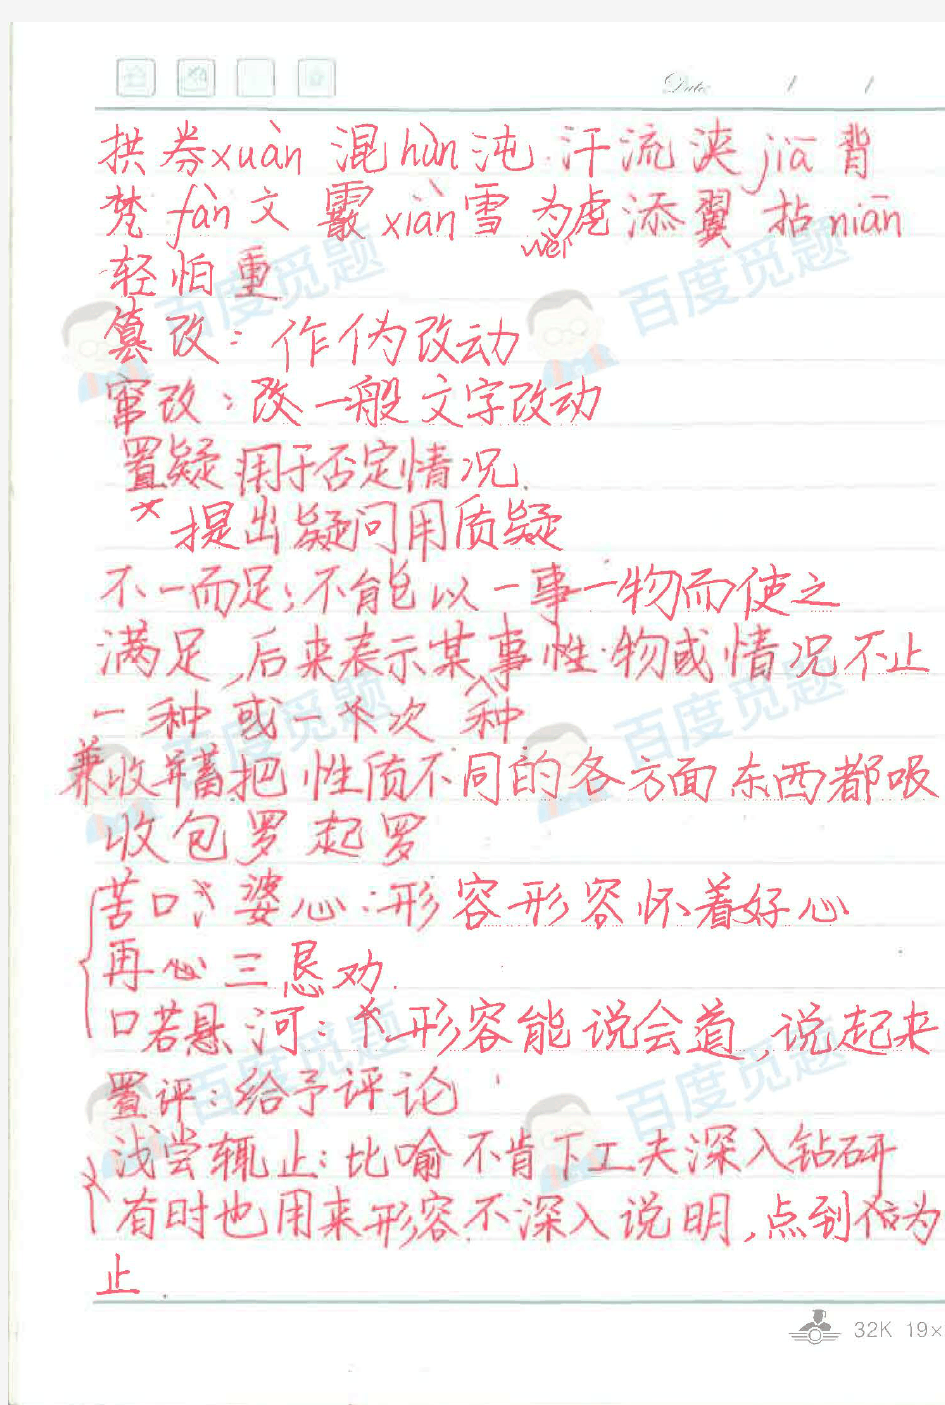 Date: / /
拱券xuàn 混hùn沌 汗流浃jiā背
梵fàn文 霰xiàn雪 为虎添翼 拈niān
wèi
轻怕重
篡改：作伪改动
窜改：改一般文字改动
置疑用于否定情况.
*提出疑问用质疑
不一而足；不能以一事一物而使之
满足,后来表示某事性物或情况不止
一种或一次 种
兼收并蓄把性质不同的各方面东西都吸
收包罗起罗
苦口 婆心：形容形容怀着好心
再心三恳劝.
口若悬河：形容能说会道,说起来
置评：给予评论
浅尝辄止：比喻不肯下工夫深入钻研
有时也用来形容不深入说明,点到为
止.
32K 19×
百度觅题
百度觅题
百度觅题
百度觅题
百度觅题
百度觅题